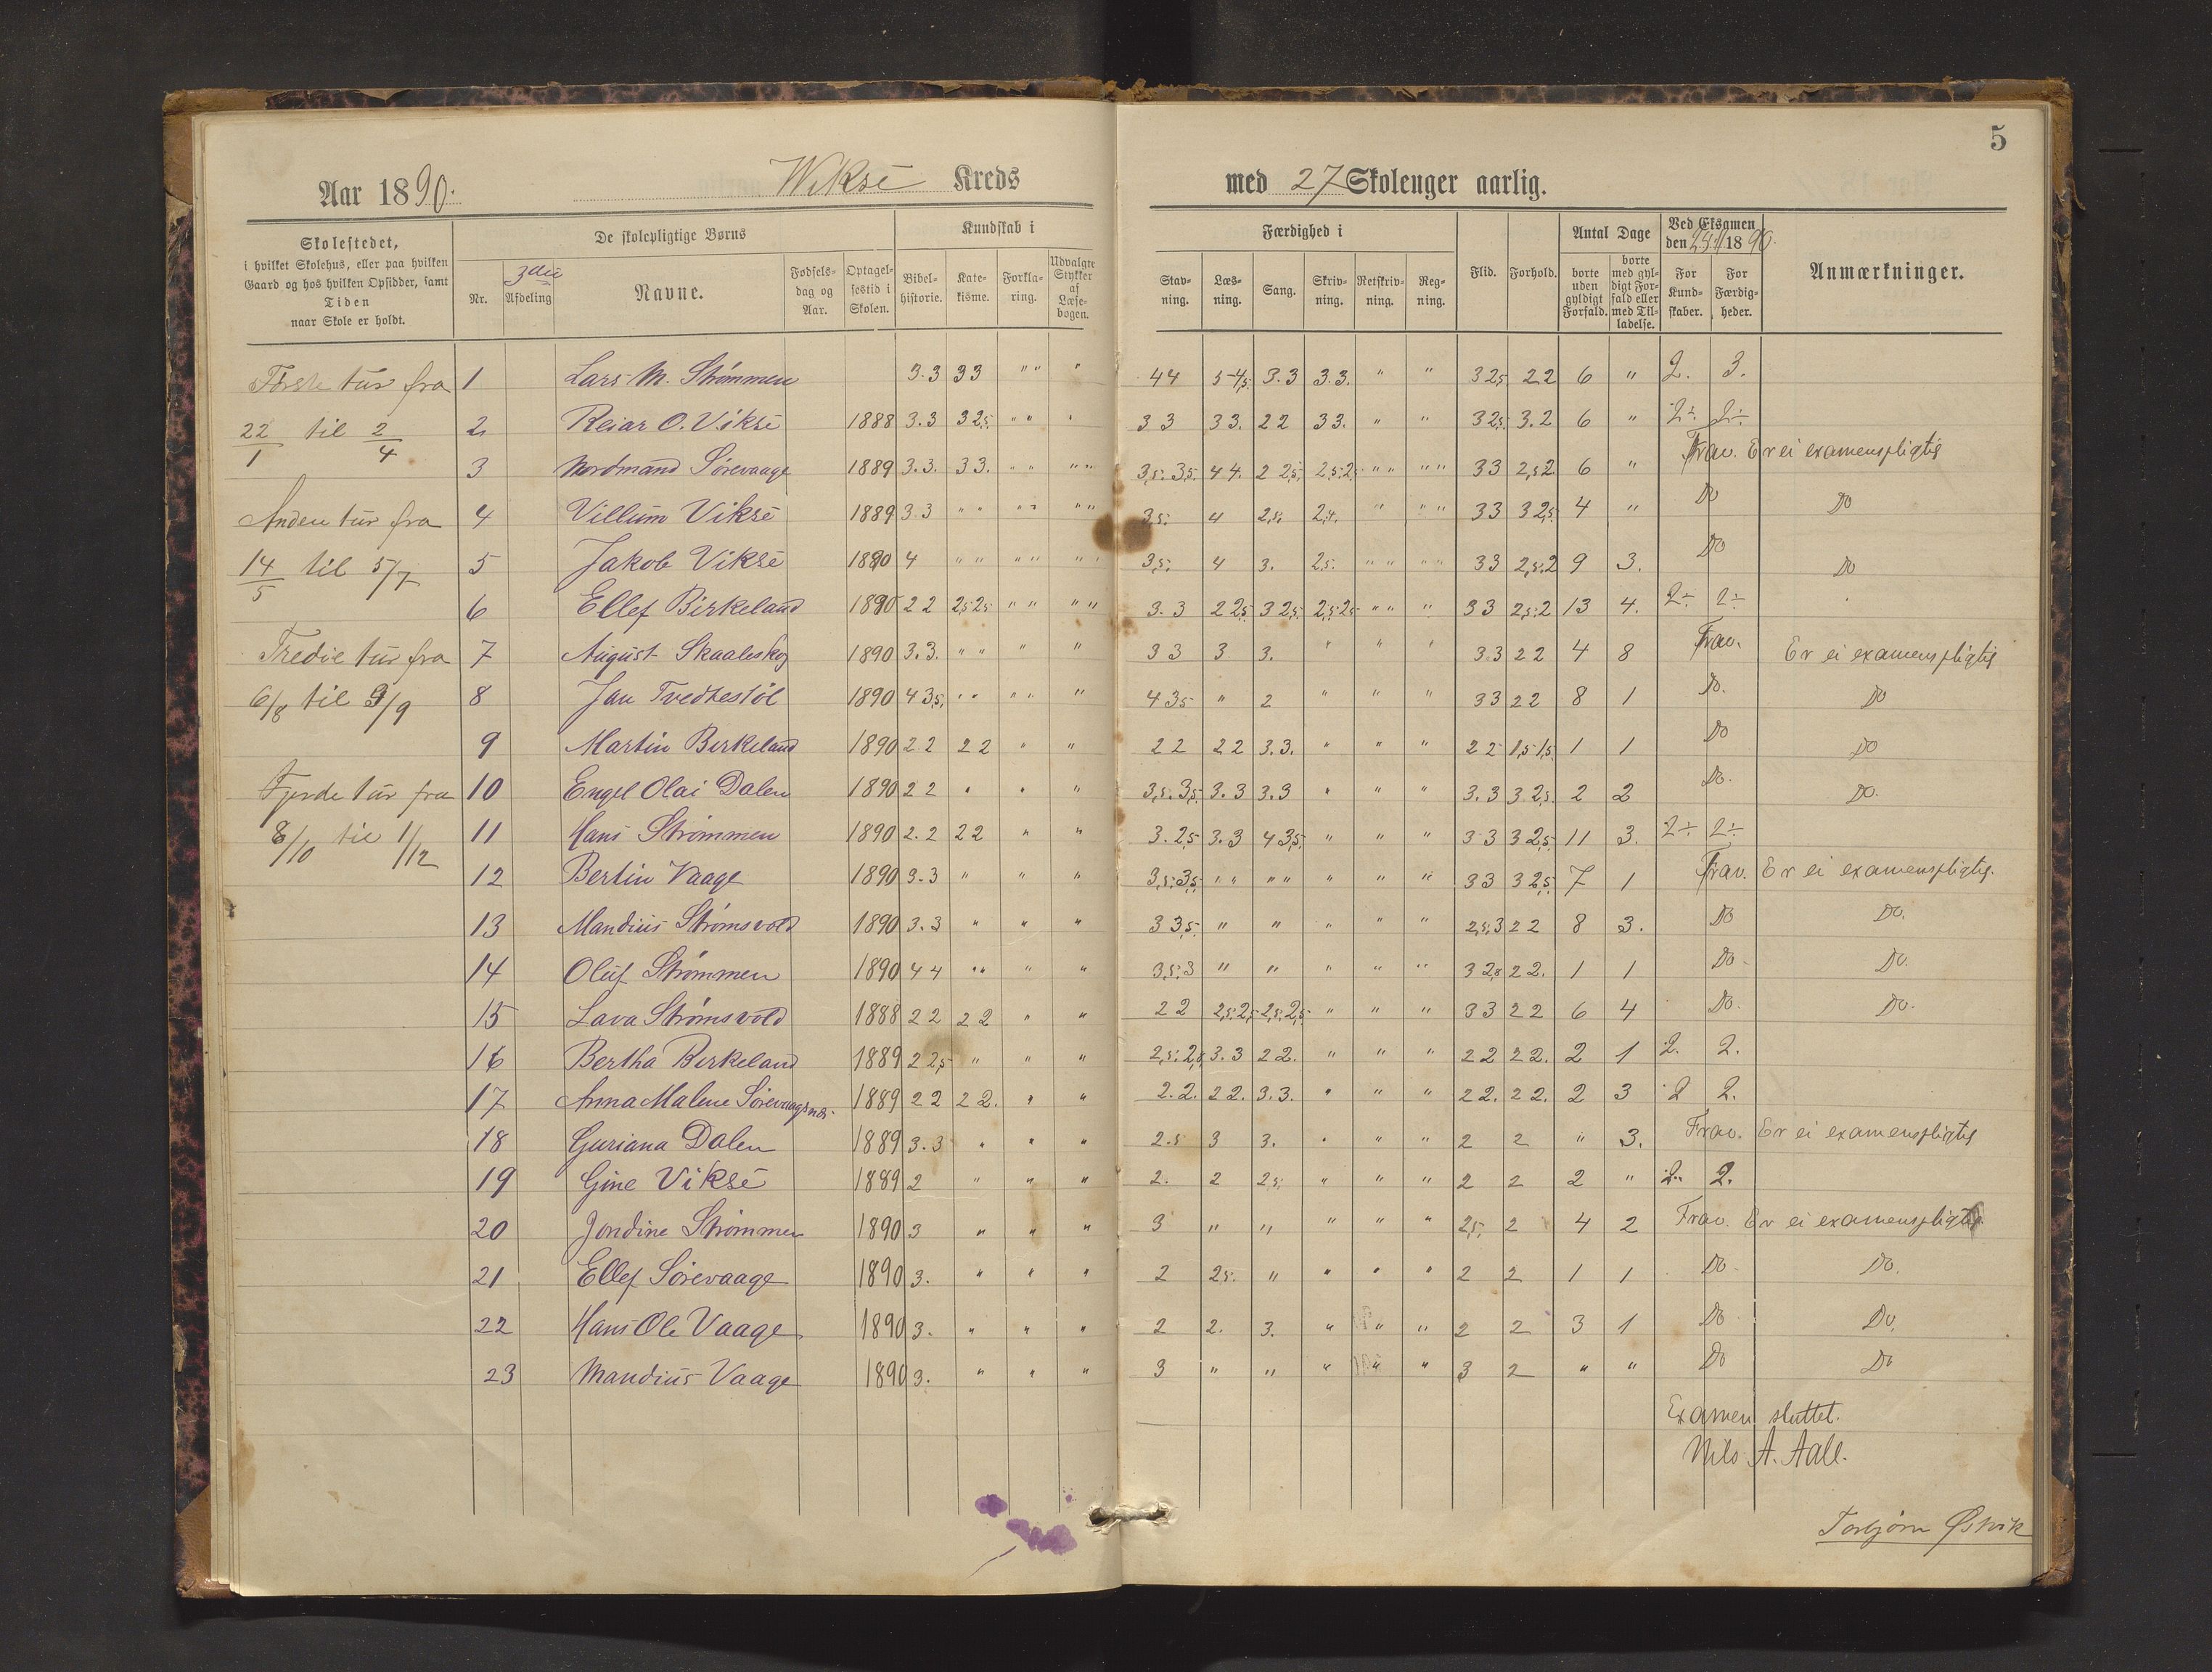 5
Aar 1890. Viksé Kreds med 27 Skoleuger aarlig.
Skolestedet,
i hvilket Skolehus, eller paa hvilken
Gaard og hos hvilken Opsidder, samt
Tiden
naar Skole er holdt.
De skolepligtige Børns
Nr.
3die
Afdeling
Navne.
Fødsels-
dag og
Aar.
Optagel-
sestid i
Skolen.
Kundskab i
Bibel-
historie.
Kate-
kisme.
Forkla-
ring.
Udvalgte
Stykker
af
Læse-
bogen.
Færdighed i
Stav-
ning.
Læs-
ning.
Sang.
Skriv-
ning.
Retskriv-
ning.
Reg-
ning.
Flid.
Forhold.
Antal Dage
borte
uden
gyldigt
Forfald.
borte
med gyl-
digt For-
fald eller
med Til-
ladelse.
Ved Eksamen
den 1890.
For
Kund-
skaber.
For
Færdig-
heder.
Anmærkninger.
Første tur fra
22/1 til 2/4
Anden tur fra
14/5 til 5/7
Tredie tur fra
6/8 til 9/9
Fjerde tur fra
8/10 til 1/12
1 Lars M. Strømmen 3.3 33 " " " 44 5-4,5. 3.3 3.3. " " 32,5 22 6 " 2. 3.
2 Reiar O. Viksé 1888 3.3 32,5. " " " 33 33. 22 33. " " 32,5. 3.2 6 " 2÷ 2÷
3 Nordmand Sørevaage 1889 3.3. 33. " " " " 3,5. 3,5. 44. 2 2,5. 2,5. 2,5 " " " " 33 2,5 2 6 " Frav. Er ei examenspligtig
4 Villum Viksé 1889 3.3 " " " " " " 3,5. 4 2,5. 2,5. " " " 33 32,5. 4 " Do Do
5 Jakob Viksé 1890 4 " " " " " " 3,5. 4 3. 2,5. " " " " 33 2,5.2 9 3. Do Do
6 Ellef Birkeland 1890 22 2,5 2,5 " " " " 3.3 22,5 32,5. 2,5. 2,5 " " " 33 2,5.2 13 4. 2÷ 2÷
7 August Skaaleskog 1890 3.3. " " " " 33 3 3. " " " 3.3 22 4 8 Frav. Er ei examenspligtig
8 Jan Tvedtestøl 1890 4 3,5. " " " " " 4 3,5 " 2 " " " 33 22 8 1 Do. Do
9 Martin Birkeland 1890 22 22 " " 22 22 3.3. " " " 22 1,5 1,5 1 1 Do Do
10 Engel Olai Dalen 1890 22 " " " 3,5. 3,5. 3.3 3.3 " " " 3.3 32,5. 2 2 Do. Do.
11 Hans Strømmen 1890 2.2 22 " " 3. 2,5 3.3 4 3,5. " " " 33 32,5. 11 3. 2÷ 2÷
12 Bertin Vaage 1890 3.3 " " " 3,5. 3,5. " " " " " " " 33 32,5. 7 1 Frav. Er ei examenspligtig.
13 Mandius Strømsvold 1890 3.3 " " " 3 3,5. " " " " " 2,5.3 22 8 3. Do Do.
14 Oluf Strømmen 1890 44 " " " " 3,5.3 " " " " " 32,5 22. 1 1 Do Do.
15 Lava Strømsvold 1888 22 22 " " 22 2,5. 2,5 2,5. 2,5 " " " 33 22 6 4 Do. Do.
16 Bertha Birkeland 1889 22,5 " " " 2,5. 2,5 3.3 22. " " " 22 22. 2 1 2. 2.
17 Anna Malene Sørevaagsnes. 1889 22 22. " " 2.2. 22. 3.3. " " " 22. 22. 2 3 2 2.
18 Guriana Dalen 1889 3.3 " " " 2.5 3 3. " " " 2 2 " 3. Frav. Er ei examenspligtig
19 Gine Viksé 1889 2 " " " 2. 2 2,5. " " " 2 2 2 " 2. 2.
20 Jondine Strømmen 1890 3 " " " 3 " " " " " 2,5. 2 4 2 Frav. Er ei examenspligtig
21 Ellef Sørevaage 1890 3. " " " 2 2,5. " " " " 2 2 1 1 Do Do.
22 Hans Ole Vaage 1890 3. " " " 2 2. 3. " " " 2 2 3 1 Do Do.
23 Mandius Vaage 1890 3. " " " 3 " " " " " 3 2 " " Do Do
Examen sluttet.
Nils A. Aall.
Torbjørn Østvik